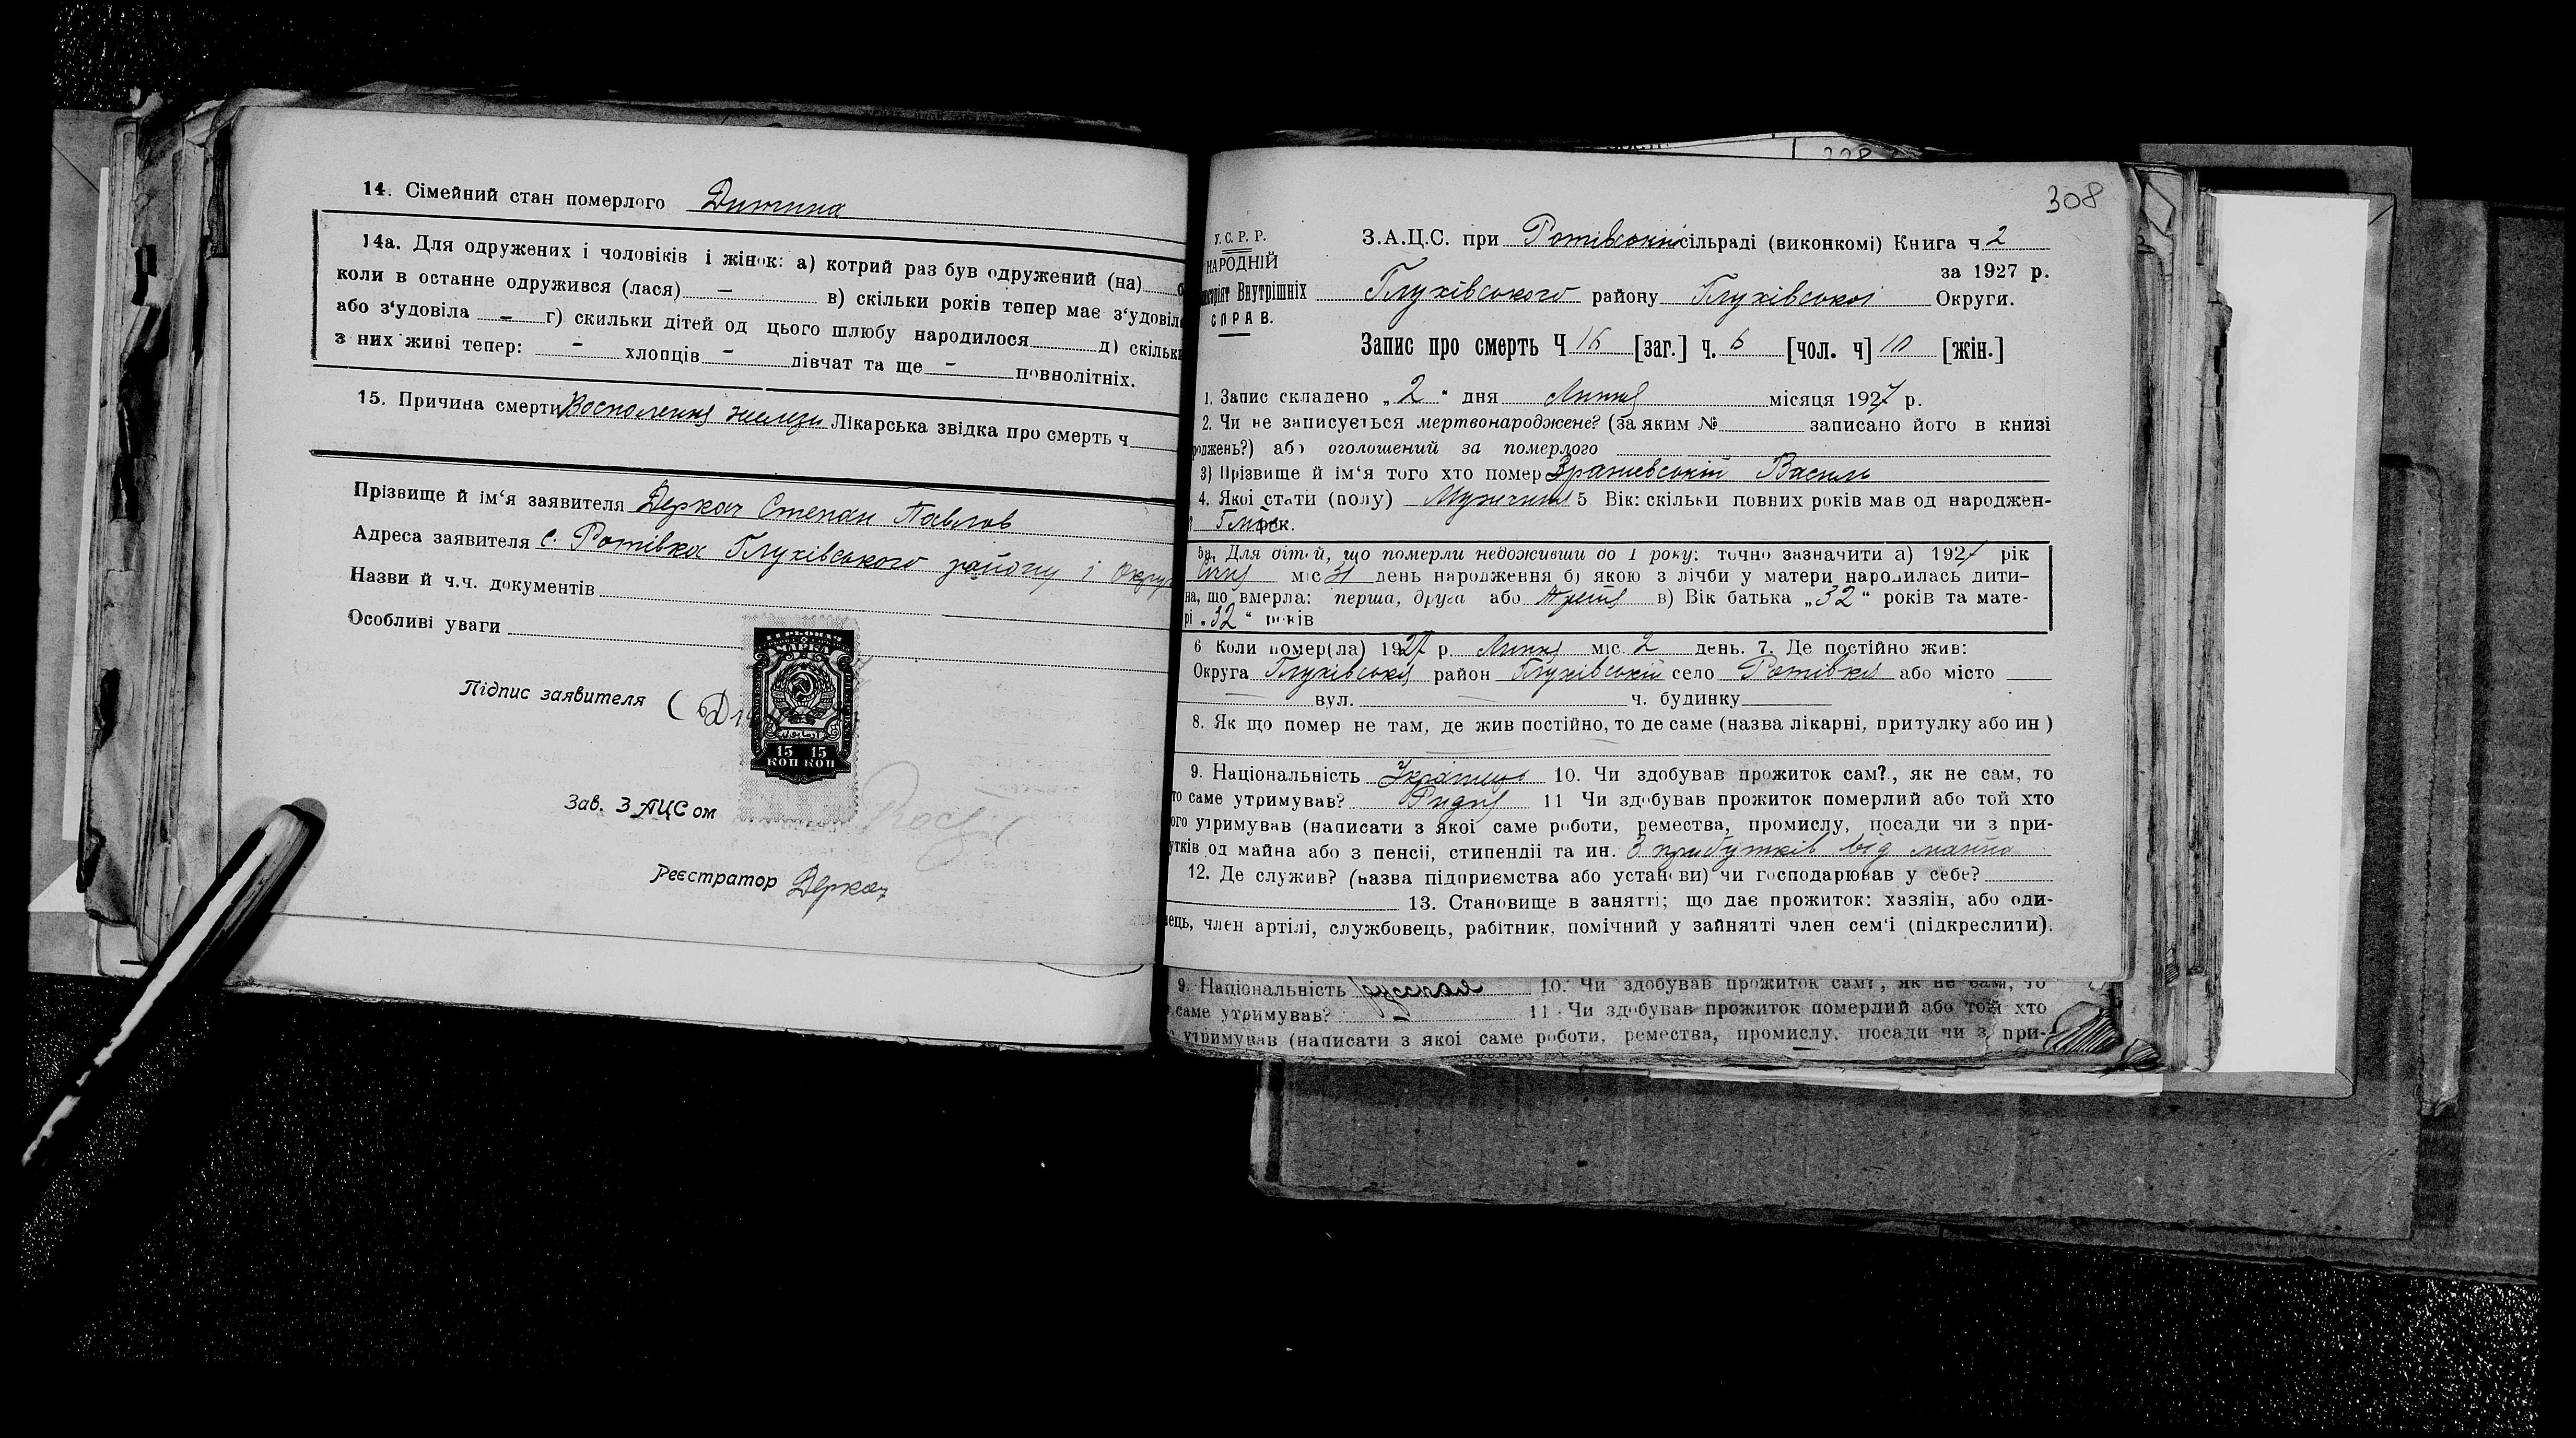 14. Сімейний стан померлого Дитина
14а. Для одружених і чоловіків і жінок: а) котрий раз був одружений (на)
коли в останне одружився (лася) — в) скільки років тепер має з‘удовіле
або з‘удовіла – г) скильки дітей од цього шлюбу народилося д) скільки
з них живі тепер: – хлопців – дівчат та ще – повнолітніх.
15. Причина смерти Лікарська звідка про смерть ч
Прізвище й ім‘я заявителя Деркач Степан Павлов
Адреса заявителя с. Ротівка Глухівського району і Округ
Назви й ч.ч. документів
Особливі уваги
МАРКА
15 15
КОП КОП
Підпис заявителя (
Зав. ЗАЦСом
Реєстратор Деркач
308
У.С.Р.Р.
НАРОДНІЙ
Внутрішніх
СПРАВ.
З.А.Ц.С. при Ротівській сільраді (виконкомі) Книга ч 2
за 1927 р.
Глухівського району Глухівської Округи.
Запис про смерть Ч 16 [заг.] ч. 6 [чол. ч] 10 [жін.]
1. Запис складено „2“ дня Липня місяця 1927 р.
2. Чи не записується мертвонароджене? (за яким № записано його в книзі
роджень?) або оголошений за померлого
3) Прізвище й ім‘я того хто помер Василь
4. Якої стати (полу) Мужчина 5 Вік: скільки повних років мав од народжен-
рок.
5а. Для дітей, що померли недоживши до 1 року: точно зазначити а) 1927 рік
Січня міс 31 день народження б) якою з лічби у матери народилась дити-
на, що вмерла: перша, друга або третя в) Вік батька „32“ років та мате-
рі „32“ років
6 Коли помер(ла) 1927 р. Липня міс. 2 день. 7. Де постійно жив:
Округа Глухівська район Глухівській село Ротівка або місто
вул. — ч. будинку
8. Як що помер не там, де жив постійно, то де саме (назва лікарні, притулку або ин )
9. Національність Українець 10. Чи здобував прожиток сам?, як не сам, то
то саме утримував? Рідня 11 Чи здобував прожиток померлий або той хто
ого утримував (написати з якої саме роботи, ремества, промислу, посади чи з при-
утків од майна або з пенсії, стипендії та ин. З прибутків від майна
12. Де служив? (назва підприємства або установи) чи господарював у себе?
13. Становище в занятті; що дає прожиток: хазяін, або оди-
нець, член артілі, службовець, рабітник, помічний у зайнятті член сем‘ї (підкреслити).
9. Національність русская 10. Чи здобував прожиток сам?, як не сам, то
саме утримував? – 11. Чи здобував прожиток померлий або той хто
утримував (написати з якої саме роботи, ремества, промислу, посади чи з при-